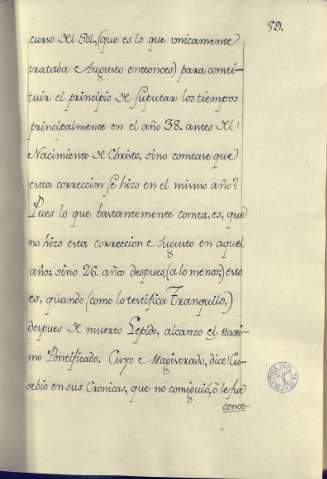 59.
curso del Sol, (que es lo que unicamente
trataba Augusto entonces) para consti-
tuir el principio de suputar los tiempos
principalmente en el año 38. antes del
Nacimiento de Christo, sino constare que
esta correccion se hizo en el mismo año?
Pues lo que bastantemente consta, es, que
no hizo esta correccion Augusto en aquel
año; sino 26. años despues (a lo menos;) esto
es, quando (como lo testifica Tranquilo,)
despues de muerto Lepido, alcanzo el Maxi-
mo Pontificado. Cuyo Magistrado, dice Eu-
sebio en sus Cronicas, que no consiguió, ó le fue
conce-